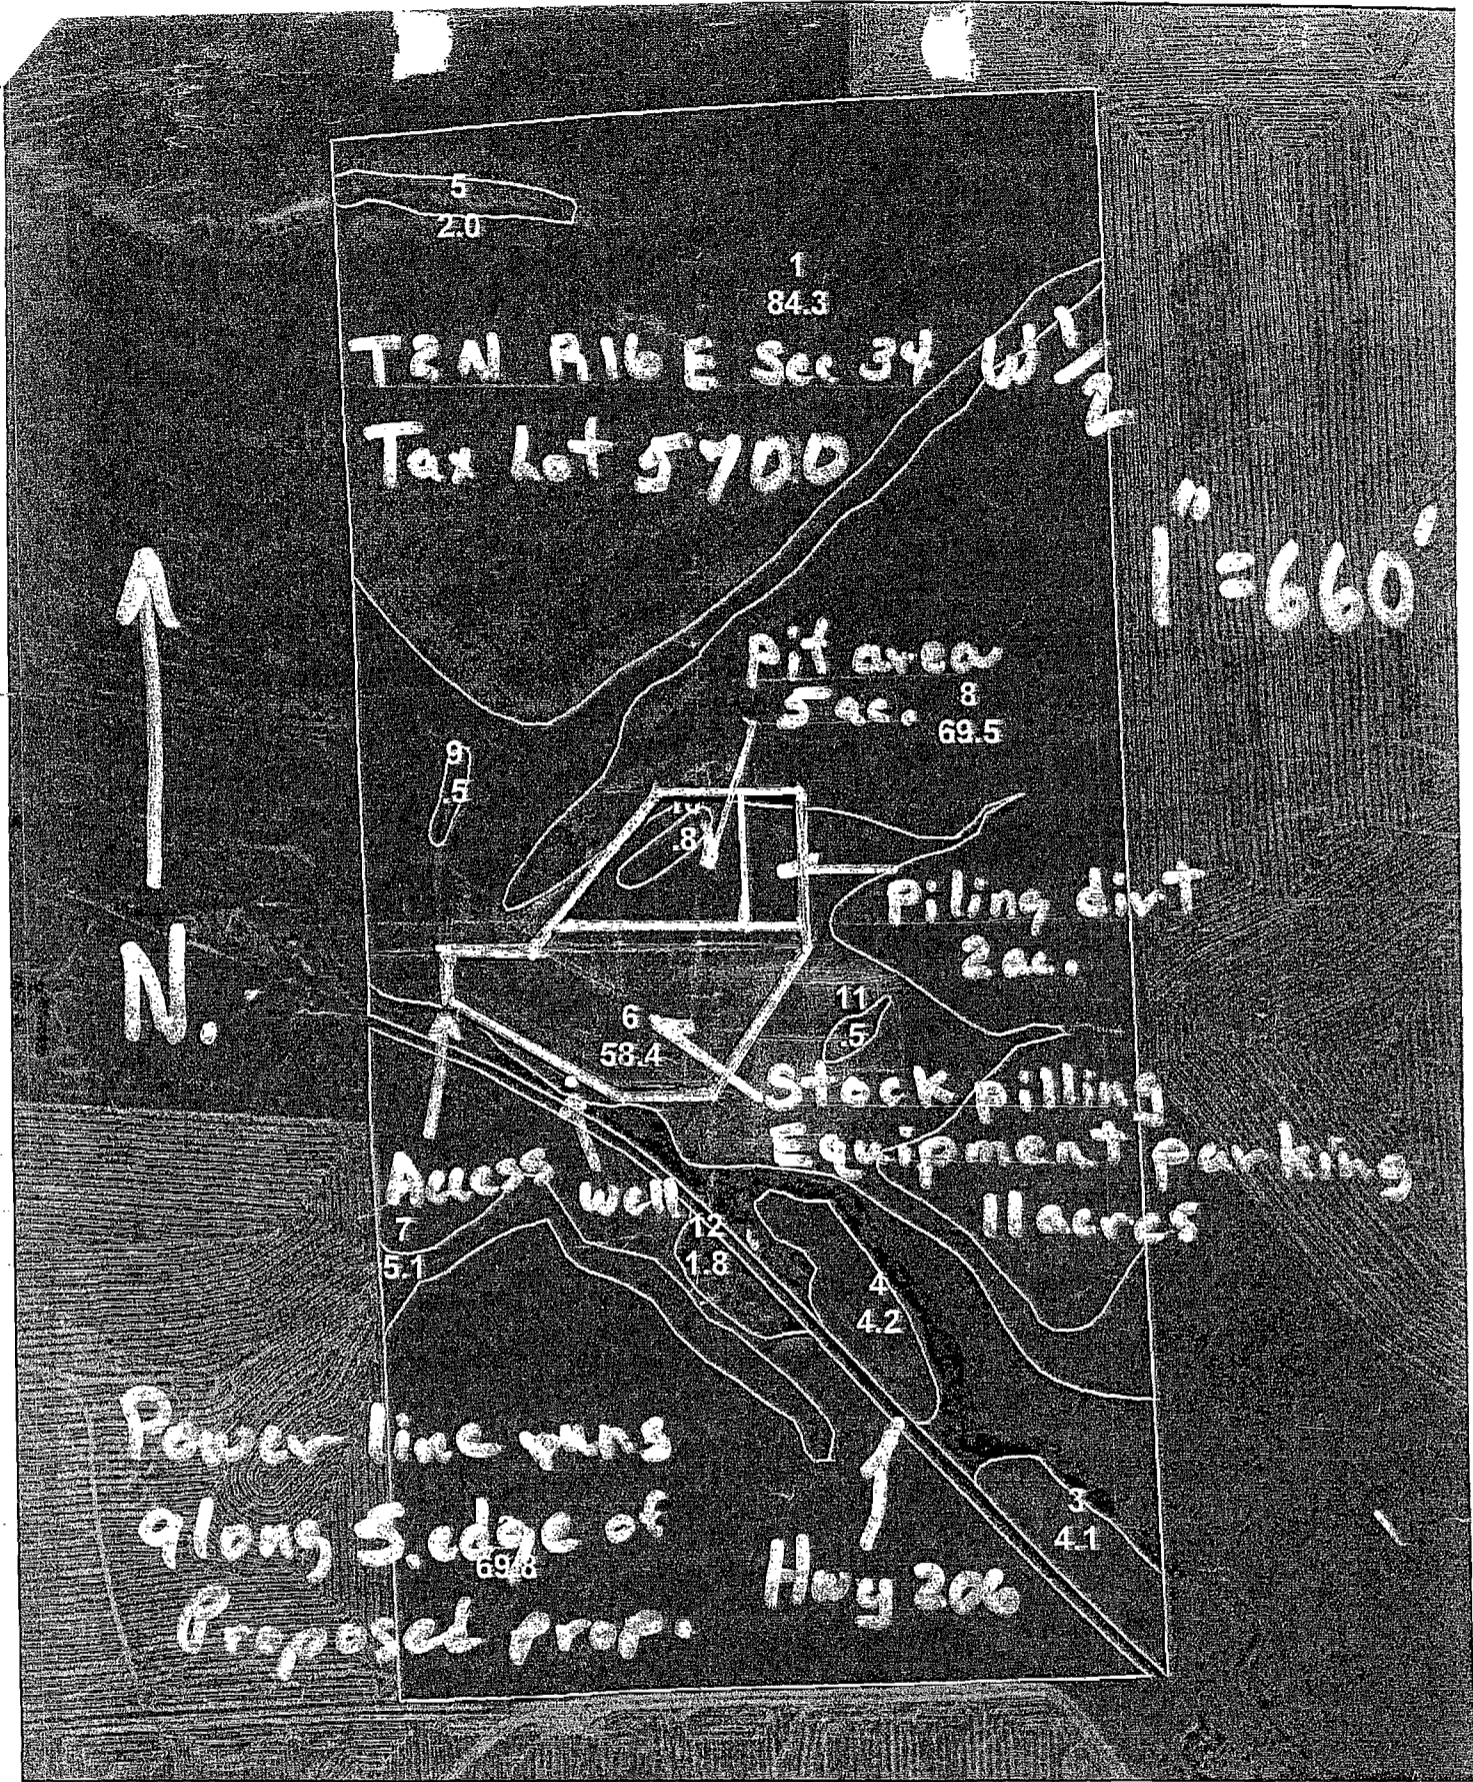 5
2.0
1
84.3
T2N R16 E Sec 34 W 1/2
Tax Lot 5700
1" = 660'
pit area
5 ac.
8
69.5
9
.5
10
.8
Piling dirt
2 ac.
N.
11
.5
6
58.4
Stock pilling
Equipment parking
11 acres
Access
well
7
5.1
12
1.8
4
4.2
Power line runs
along S. edge of
69.8
Proposed prop.
Hwy 206
3
4.1